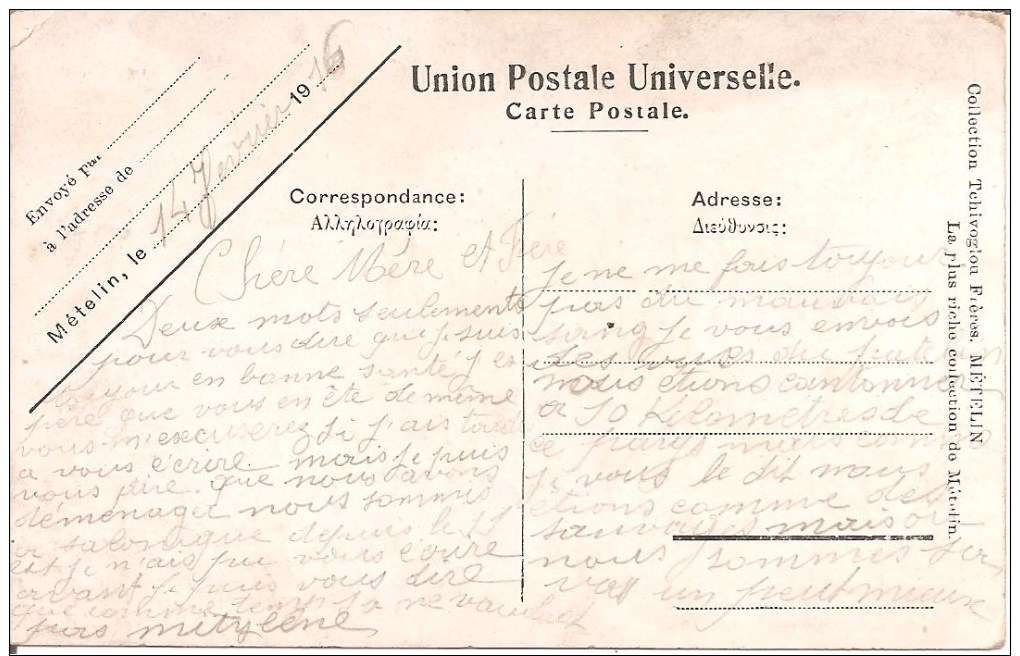 Union Postale Universelle.
Carte Postale.
Envoyé par
à l'adresse de
Mételin, le 14 Fevrier 1916
Correspondance:
Αλληλογραφία:
Chére Mére et Frére
Deux mots seulements
pour vous dire que je suis
toujour en bonne santé j es
pére que vous en ête de même
vous m'excuserez si j'ais tardé
a vous écrire mais je puis
vous dire que nous avons
démenager nous sommes
a salonique depuis le 11
et je n'ais pu vous écrire
avant je puis vous dire
que comme temp sa ne vaut
pas mitylene
Adresse:
Διεύθυνσις:
je ne me fais toujour
pas du mauvais
sang je vous envois
des vues du
nous étions cantonner
a 10 kilometres de
ce pays mais comme
je vous le dit nous
étions comme des
sauvages mais ou
nous sommes
un peut mieux
Collection Tchivoglou Frères. MÉTELIN
La plus riche collection de Métélin.